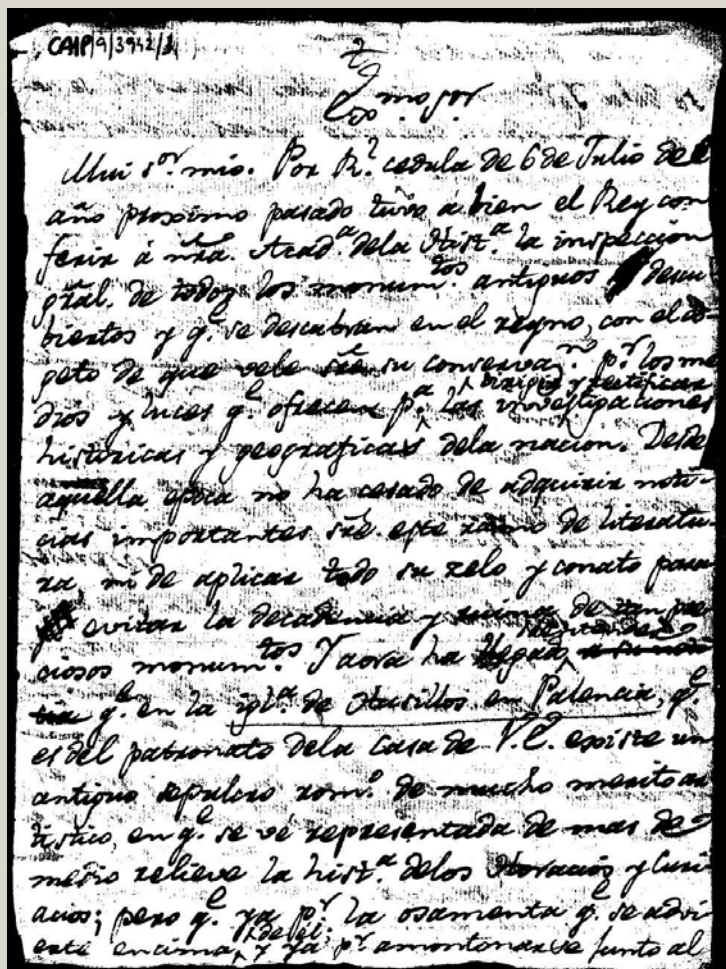 CAIP/9/3942/1
Exmo. Sor.
Mui sor. mio. Por Rl. cedula de 6 de Julio del
año proximo pasado tuvo á bien el Rey con
ferir á nra. Acada. dela Hista. la inspección
gral. de todos los monumtos. antiguos descu
biertos y qe. se descubran en el reyno, con el ob
geto de que vele sre su conservan. pr. los me
dirigir y rectificar
dios y luces qe. ofrecen pa. las investigaciones
históricas y geograficas dela nacion. Desde
aquella epoca no ha cesado de adquirir noti-
cias importantes sre. este ramo de literatu-
ra ni de aplicar todo su zelo y conato para
evitar la decadencia y ruina de tan pre
ciosos monumtos. Y aora ha
qe. en la igla. de Husillos en Palencia, qe.
es del patronato dela casa de V.E. existe un
antiguo sepulcro romo. de mucho merito ar
tistico, en qe. se vé representada de mas de
medio relieve la hista. delos Horacios y Curi
acios; pero qe. ya pr. la osamenta qe. se advi
erte encima del el, y ya pr. amontonarse junto al